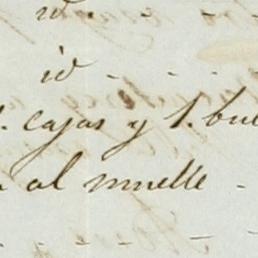 id. - -
id - - -
. cajas y 1. bul
al muelle -